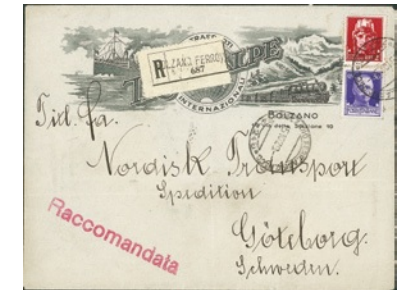 TRASPORTI
R
BOLZANO FERROVIA
687
INTERNAZIONALI
BOLZANO
Via della Stazione 16
Titl. Fa.
Nordisk Transport
Spedition
Göteborg.
Schweden.
Raccomandata